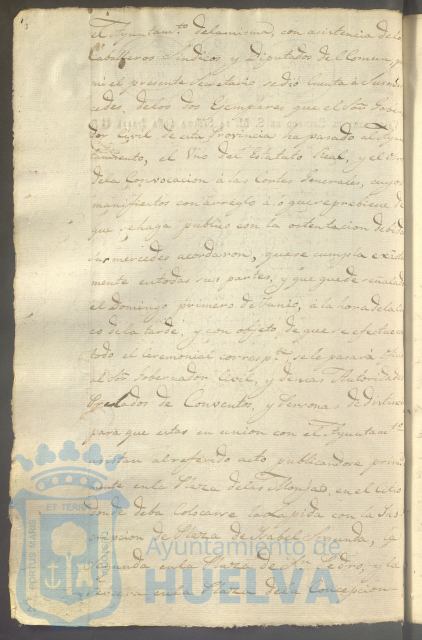 el Ayuntam.to dela misma, con asistencia delos
Caballeros Sindicos y Diputados del Comun, p.r
mi el presente Secretario se dió Cuenta à Sus mer
cedes delos dos Exemplares que el Sor. Gober
dor Civil de esta Provincia ha pasado al Ayun
tamiento, el Uno del Estatuto Real, y el otro
dela Convocacion à las Cortes Generales, cuyos
manifiestos con arreglo à lo que se prebiene de
que se haga publico con la ostentacion debida
sus mercedes acordaron, que se cumpla exacta
mente en todas sus partes, y que quede señalado
el Domingo primero de Junio, à la hora delas
co dela tarde; y con objeto de que se efectue con
todo el Ceremonial corresp.te se le pasará
al Sor. Gobernador Civil, y demas Autoridades
Prelados de Conventos, y Personas de distin
para que estas en union con el Ayuntam.to
asistan al referido acto publicandose prim
mente en la Plaza delas Monjas, en el sitio
donde deba Colocarse la Lapida con la Ins
cripcion de Plaza de Isabel Segunda, la
Segunda en la Plaza de Sn. Pedro, y la
tercera en la Plaza dela Concepcion
Ayuntamiento de
HUELVA
PORTUS MARIS ET TERRAE